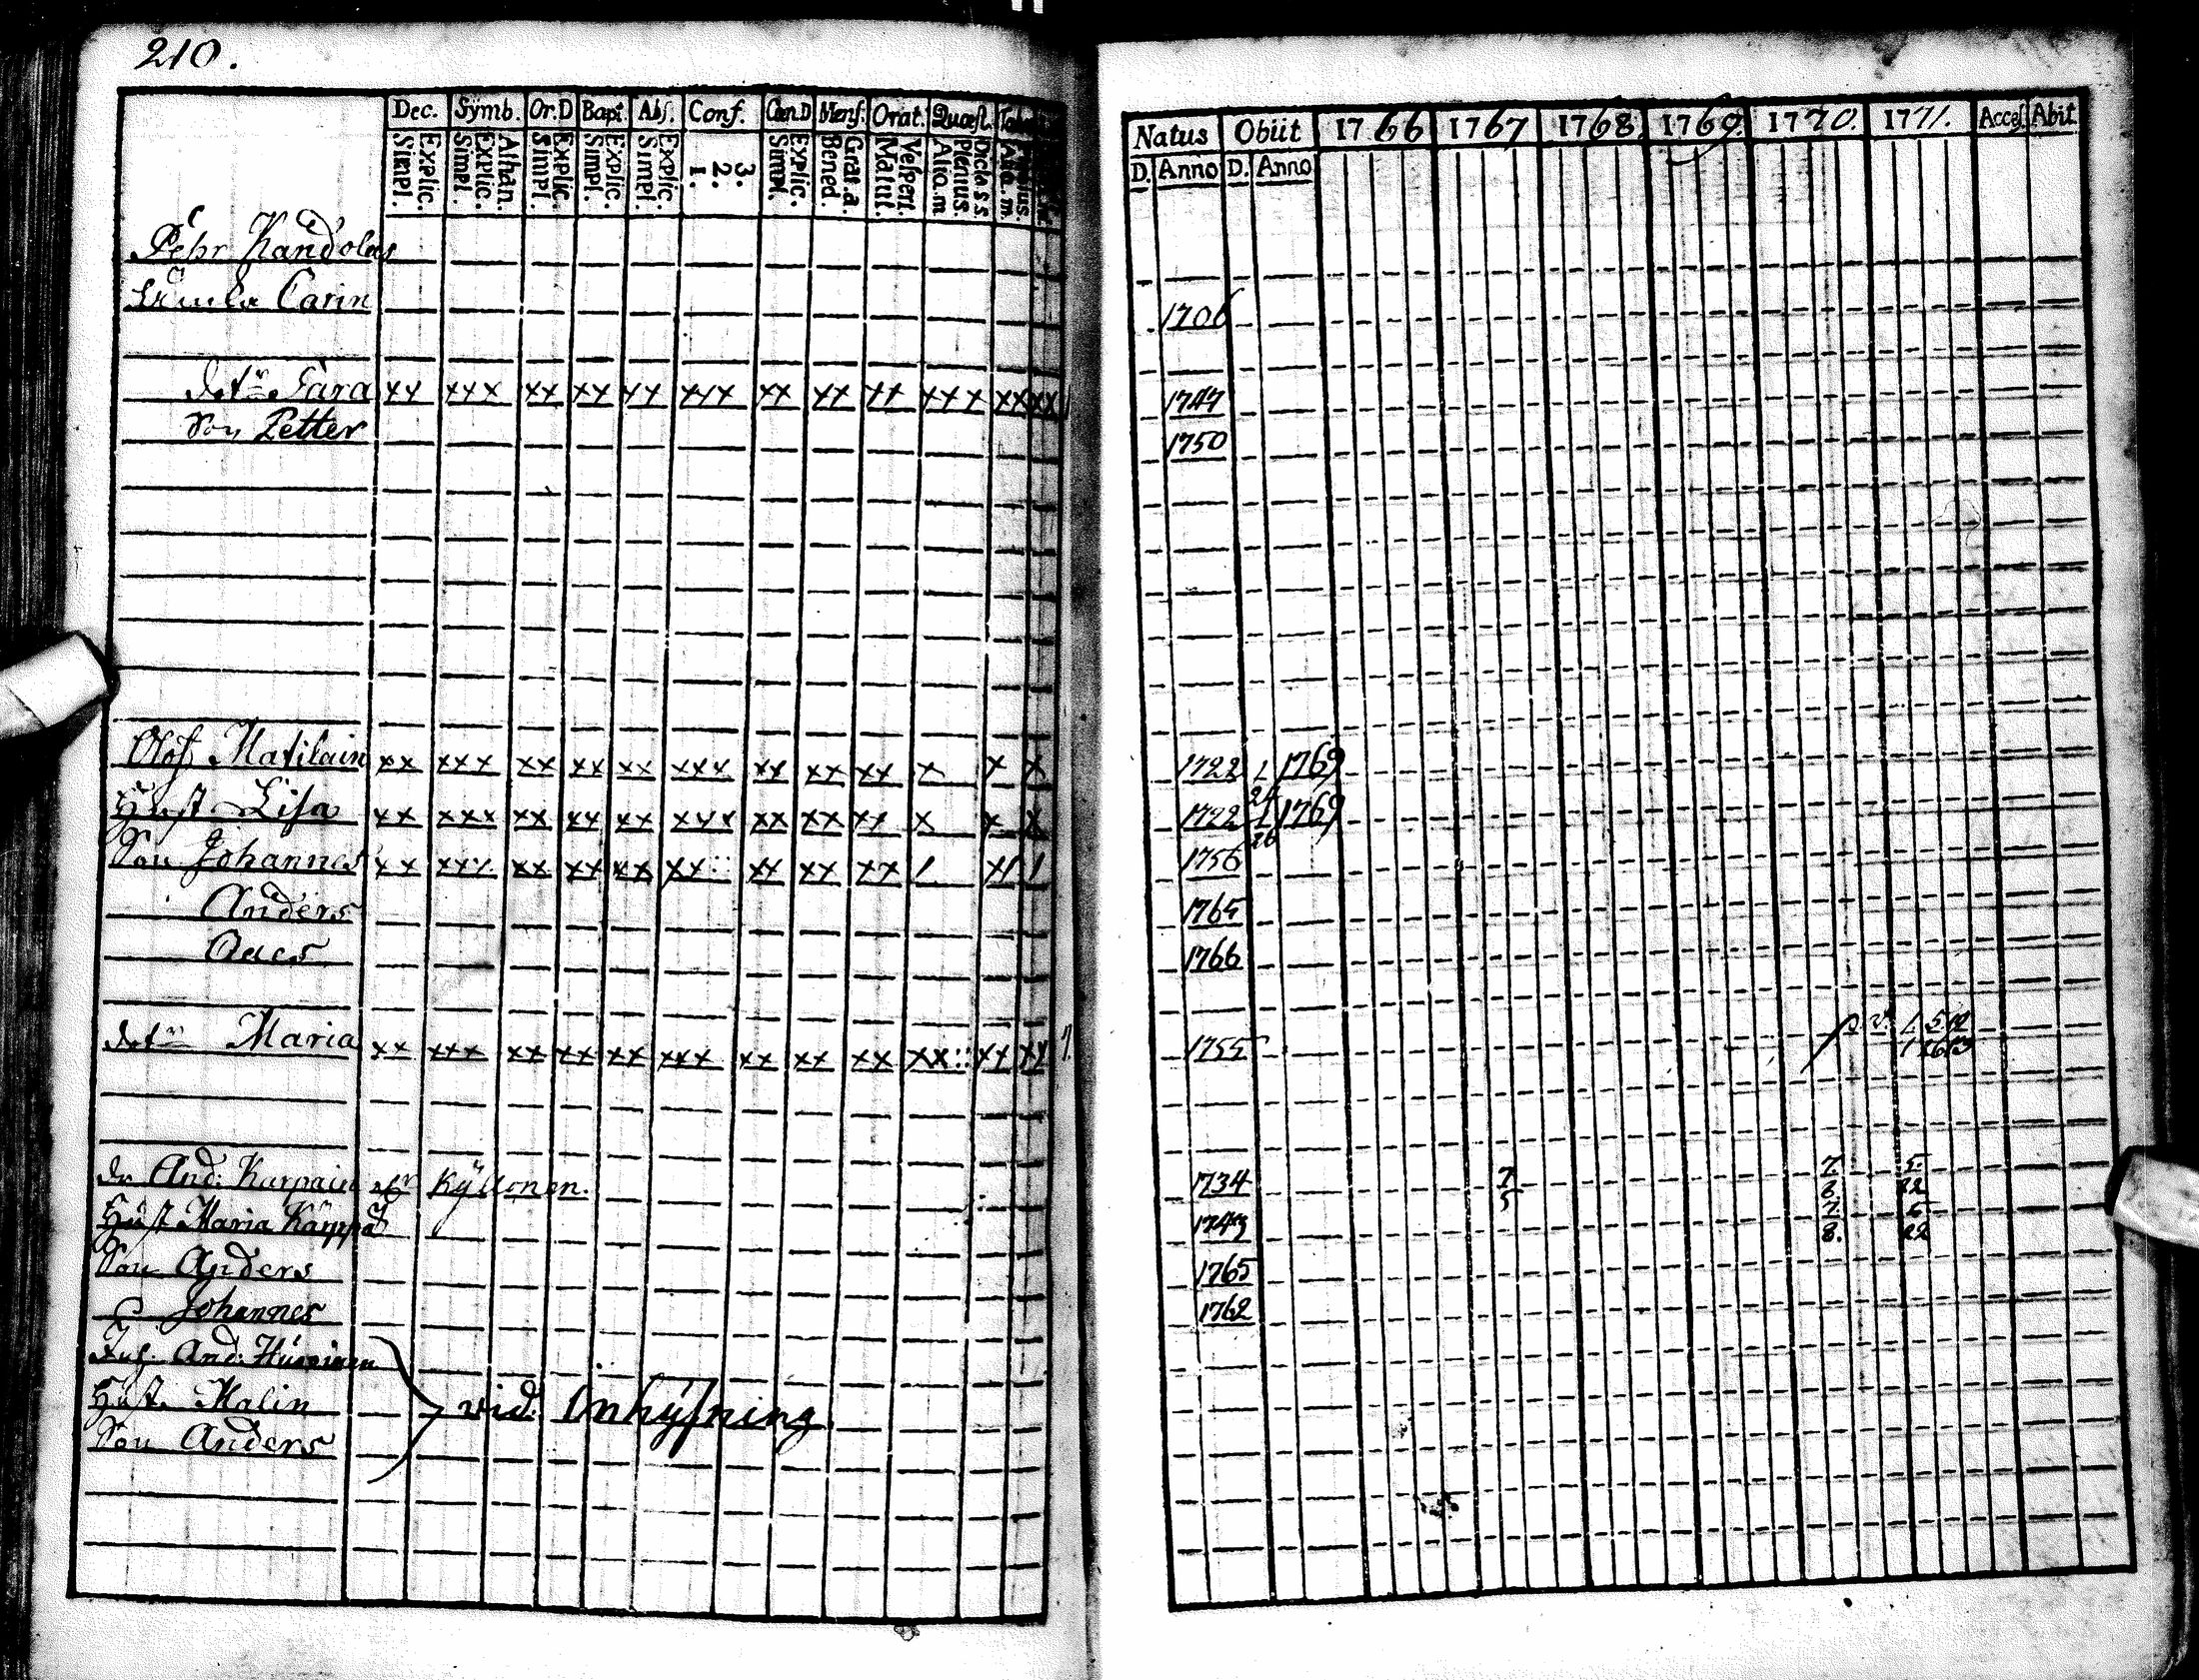 210.
Dec. Symb. Or.D Bapt. Abs. Conf. Cœn.D Mens. Orat. Quæst.
Simpl. Explic. Simpl. Explic. Athan. Simpl. Explic. Simpl. Explic. Simpl. Explic. 1. 2. 3. Simpl. Explic. Bened. Grat. a. Matut. Vespert. Alia. m Plenius. Dicta s.s. Alia. m.
Natus Obiit 1766 1767 1768. 1769. 1770. 1771. Acces. Abit.
D. Anno D. Anno
Pehr Kandolas
Carin 1706
dotr Sara xx xxx xx xx xx xxx xx xx xx xxx xx xx 1747
Son Petter 1750
Olof Matilain xx xxx xx xx xx xxx xx xx xx x x x 1722 1769
Hust Lisa xx xxx xx xx xx xxx xx xx xx x x x 1722 1769
Son Johannes xx xxx xx xx xx xx: xx xx xx / x/ / 1756
Anders 1765
1766
dotr Maria xx xxx xx xx xx xxx xx xx xx xx:: xx xx 1755
And: Karpain Kyllönen. 1734 7 5 7. 8. 5. 22
Hust Maria 7. 8. 22
Son Anders 1765
Johannes 1762
And:
Hust. Malin vid. Inhysning.
Son Anders